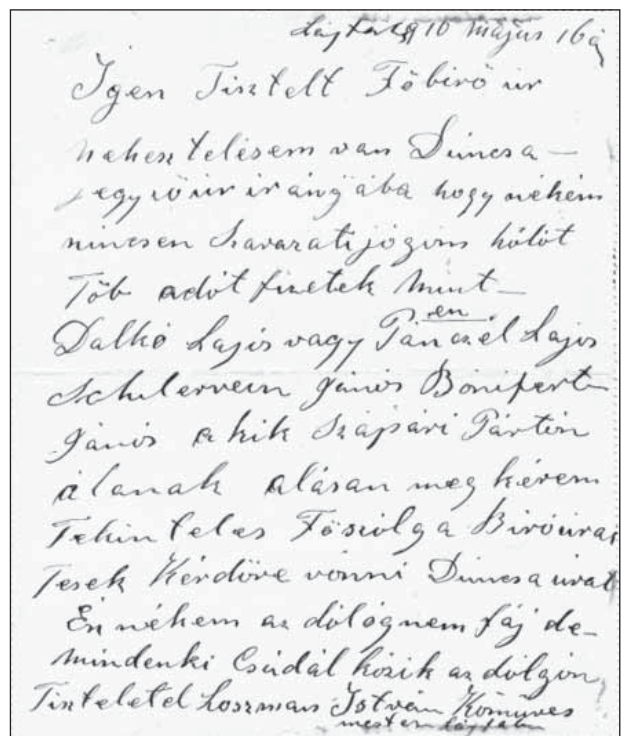 910 Május 16 á
Igen Tisztelt Főbiró úr
nehesztelésem van Duncsa
jegyző úr irányába hogy nékém
nincsen Szavazati jógom hólót
Töb adót fizetek mint
én
Dalkó Lajós vagy Pánczél Lajos
János Bonifert
János a kik Szápári Pártón
álanak alásan meg kérem
Tekintetes Főszólga Biróúrat
Tesek Kérdőre vónni Duncsa úrat
Én nékem az dólóg nem fáj de
mindenki Csudálkózik az dólgón
Tisztelettel Loszman István Kőmüves
mester